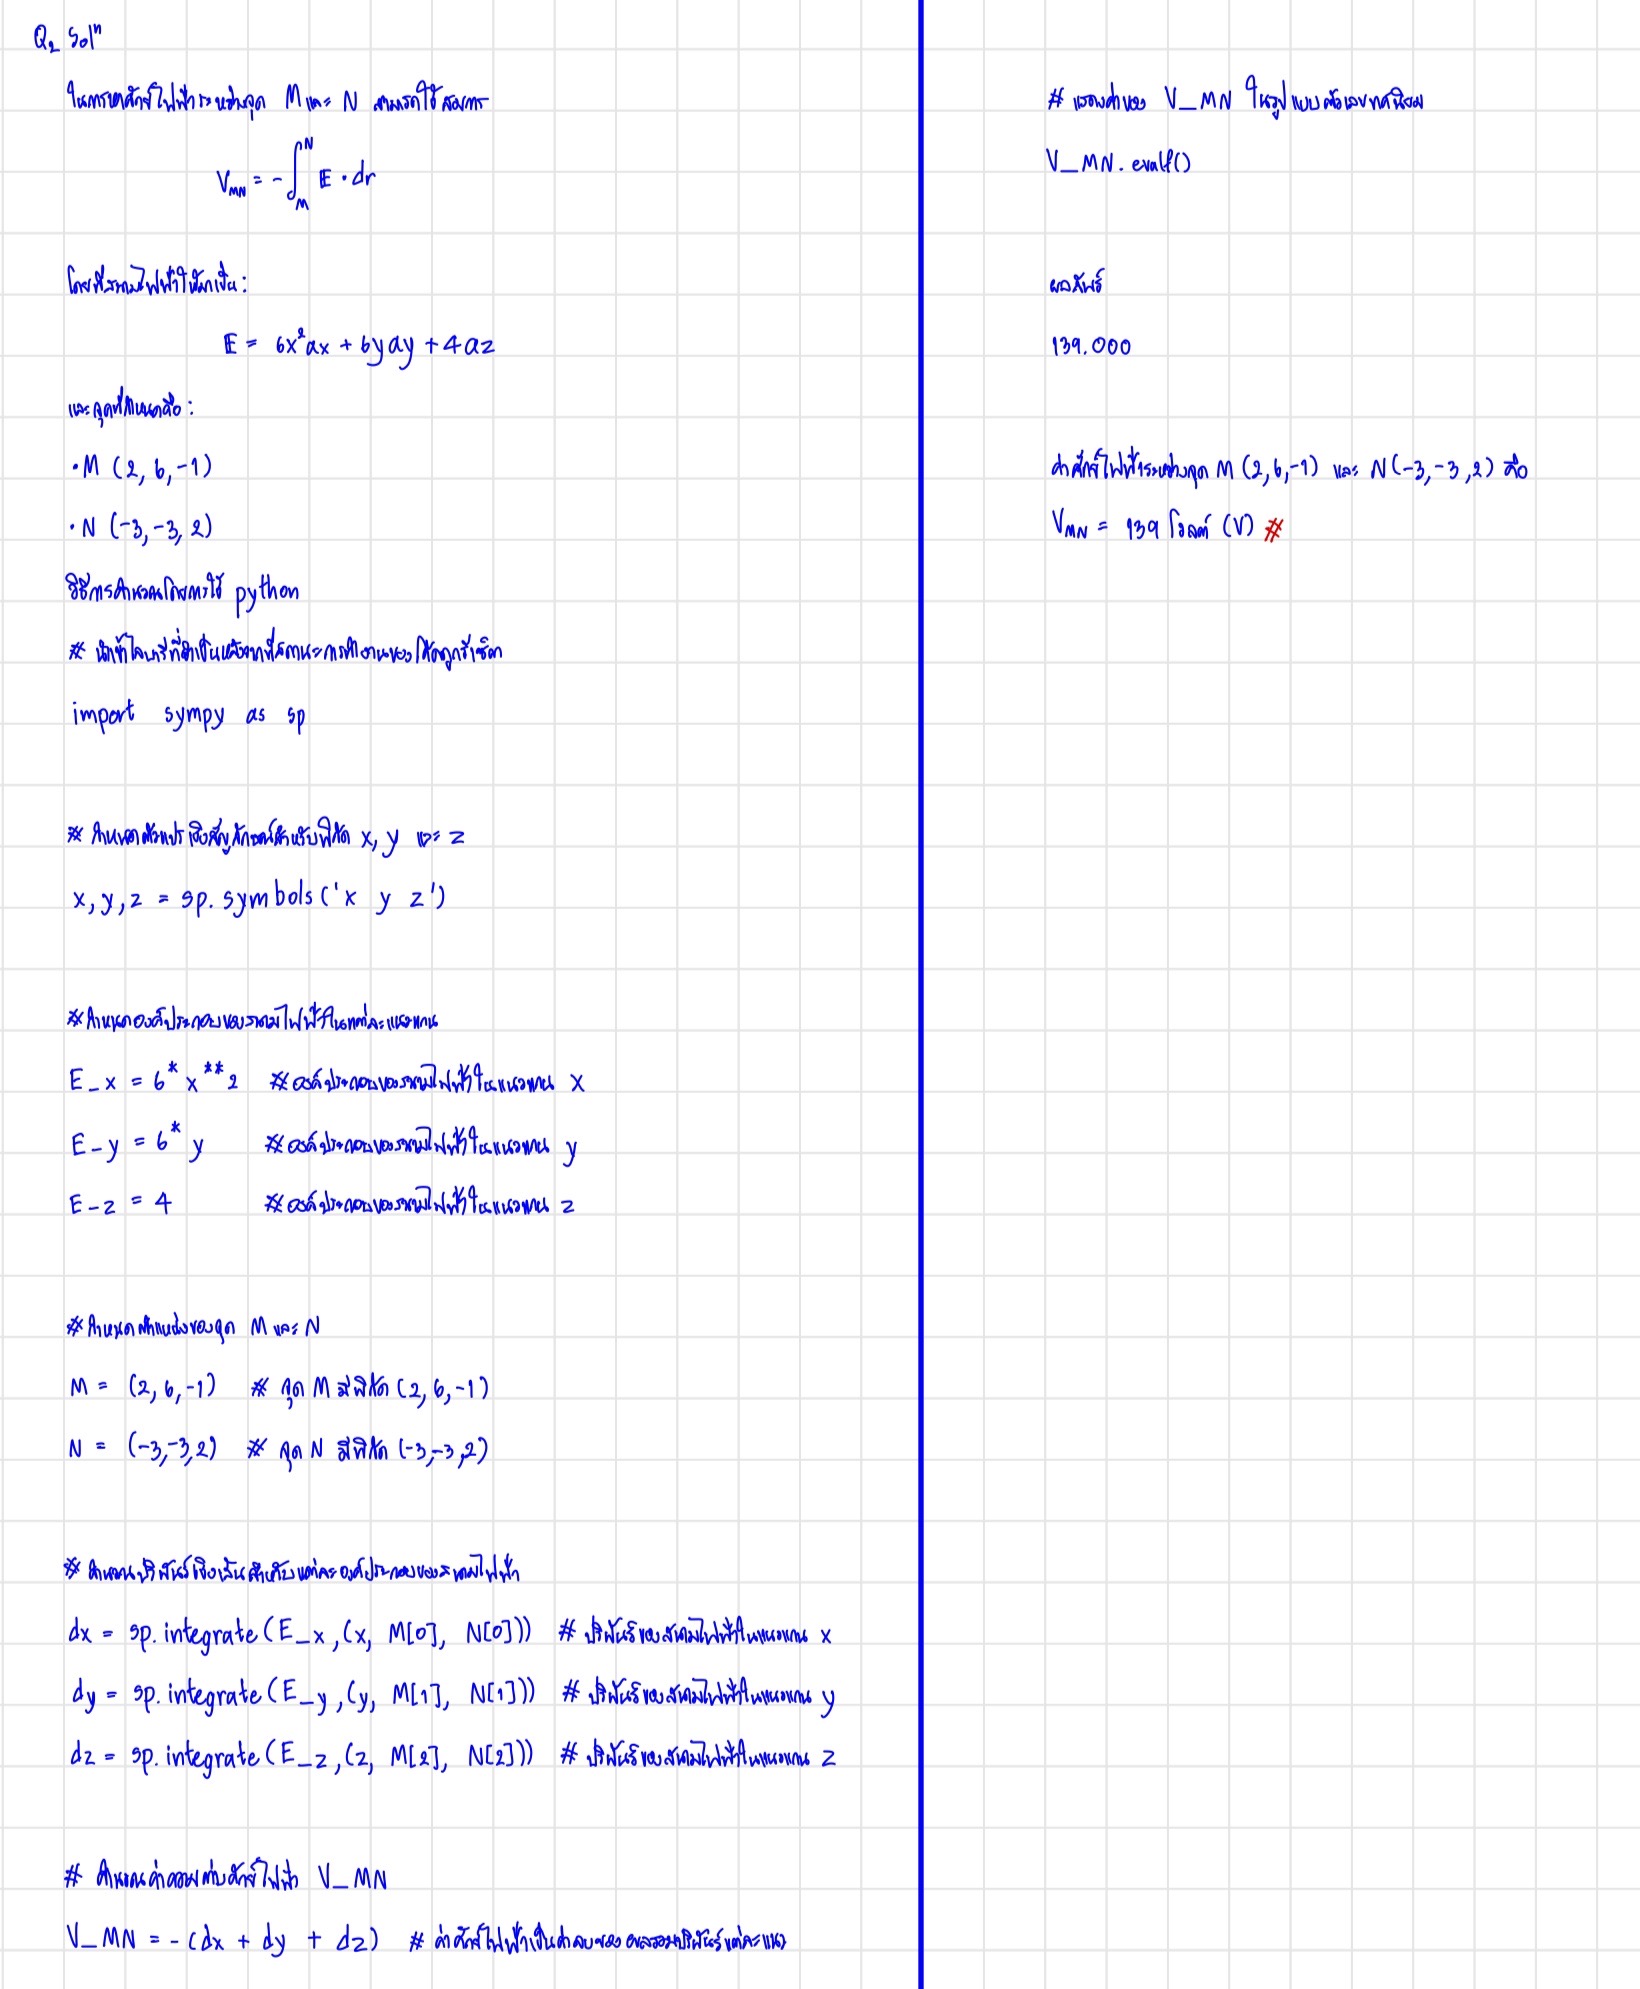 Q2 Solⁿ
ในการหาศักย์ไฟฟ้าระหว่างจุด M และ N สามารถใช้สมการ
V_MN = -∫_M^N E · dr
โดยที่สนามไฟฟ้าให้มาเป็น :
E = 6x²ax + 6yay + 4az
และจุดที่กำหนดคือ :
• M (2, 6, -1)
• N (-3, -3, 2)
วิธีการคำนวณโดยการใช้ python
# นำเข้าไลบรารีที่จำเป็นหลังจากที่สถานะการทำงานของโค้ดถูกรีเซ็ต
import sympy as sp
# กำหนดตัวแปรเชิงสัญลักษณ์สำหรับพิกัด x, y และ z
x, y, z = sp.symbols('x y z')
# กำหนดองค์ประกอบของสนามไฟฟ้าในแต่ละแนวแกน
E_x = 6*x**2 # องค์ประกอบของสนามไฟฟ้าในแนวแกน x
E_y = 6*y # องค์ประกอบของสนามไฟฟ้าในแนวแกน y
E_z = 4 # องค์ประกอบของสนามไฟฟ้าในแนวแกน z
# กำหนดตำแหน่งของจุด M และ N
M = (2, 6, -1) # จุด M มีพิกัด (2, 6, -1)
N = (-3, -3, 2) # จุด N มีพิกัด (-3, -3, 2)
# คำนวณปริพันธ์เชิงเส้นสำหรับแต่ละองค์ประกอบของสนามไฟฟ้า
dx = sp.integrate(E_x, (x, M[0], N[0])) # ปริพันธ์ของสนามไฟฟ้าในแนวแกน x
dy = sp.integrate(E_y, (y, M[1], N[1])) # ปริพันธ์ของสนามไฟฟ้าในแนวแกน y
dz = sp.integrate(E_z, (z, M[2], N[2])) # ปริพันธ์ของสนามไฟฟ้าในแนวแกน z
# คำนวณค่าความต่างศักย์ไฟฟ้า V_MN
V_MN = -(dx + dy + dz) # ค่าศักย์ไฟฟ้าเป็นค่าลบของผลรวมปริพันธ์แต่ละแนว
# แสดงค่าของ V_MN ในรูปแบบตัวเลขทศนิยม
V_MN.evalf()
ผลลัพธ์
139.000
ค่าศักย์ไฟฟ้าระหว่างจุด M (2, 6, -1) และ N (-3, -3, 2) คือ
V_MN = 139 โวลต์ (V) #